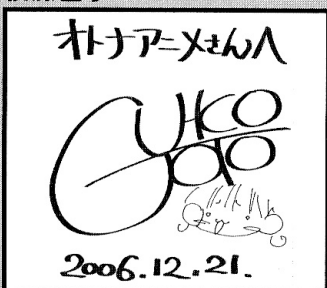 オトナアニメさんへ
YUKO
Goto
2006.12.21.